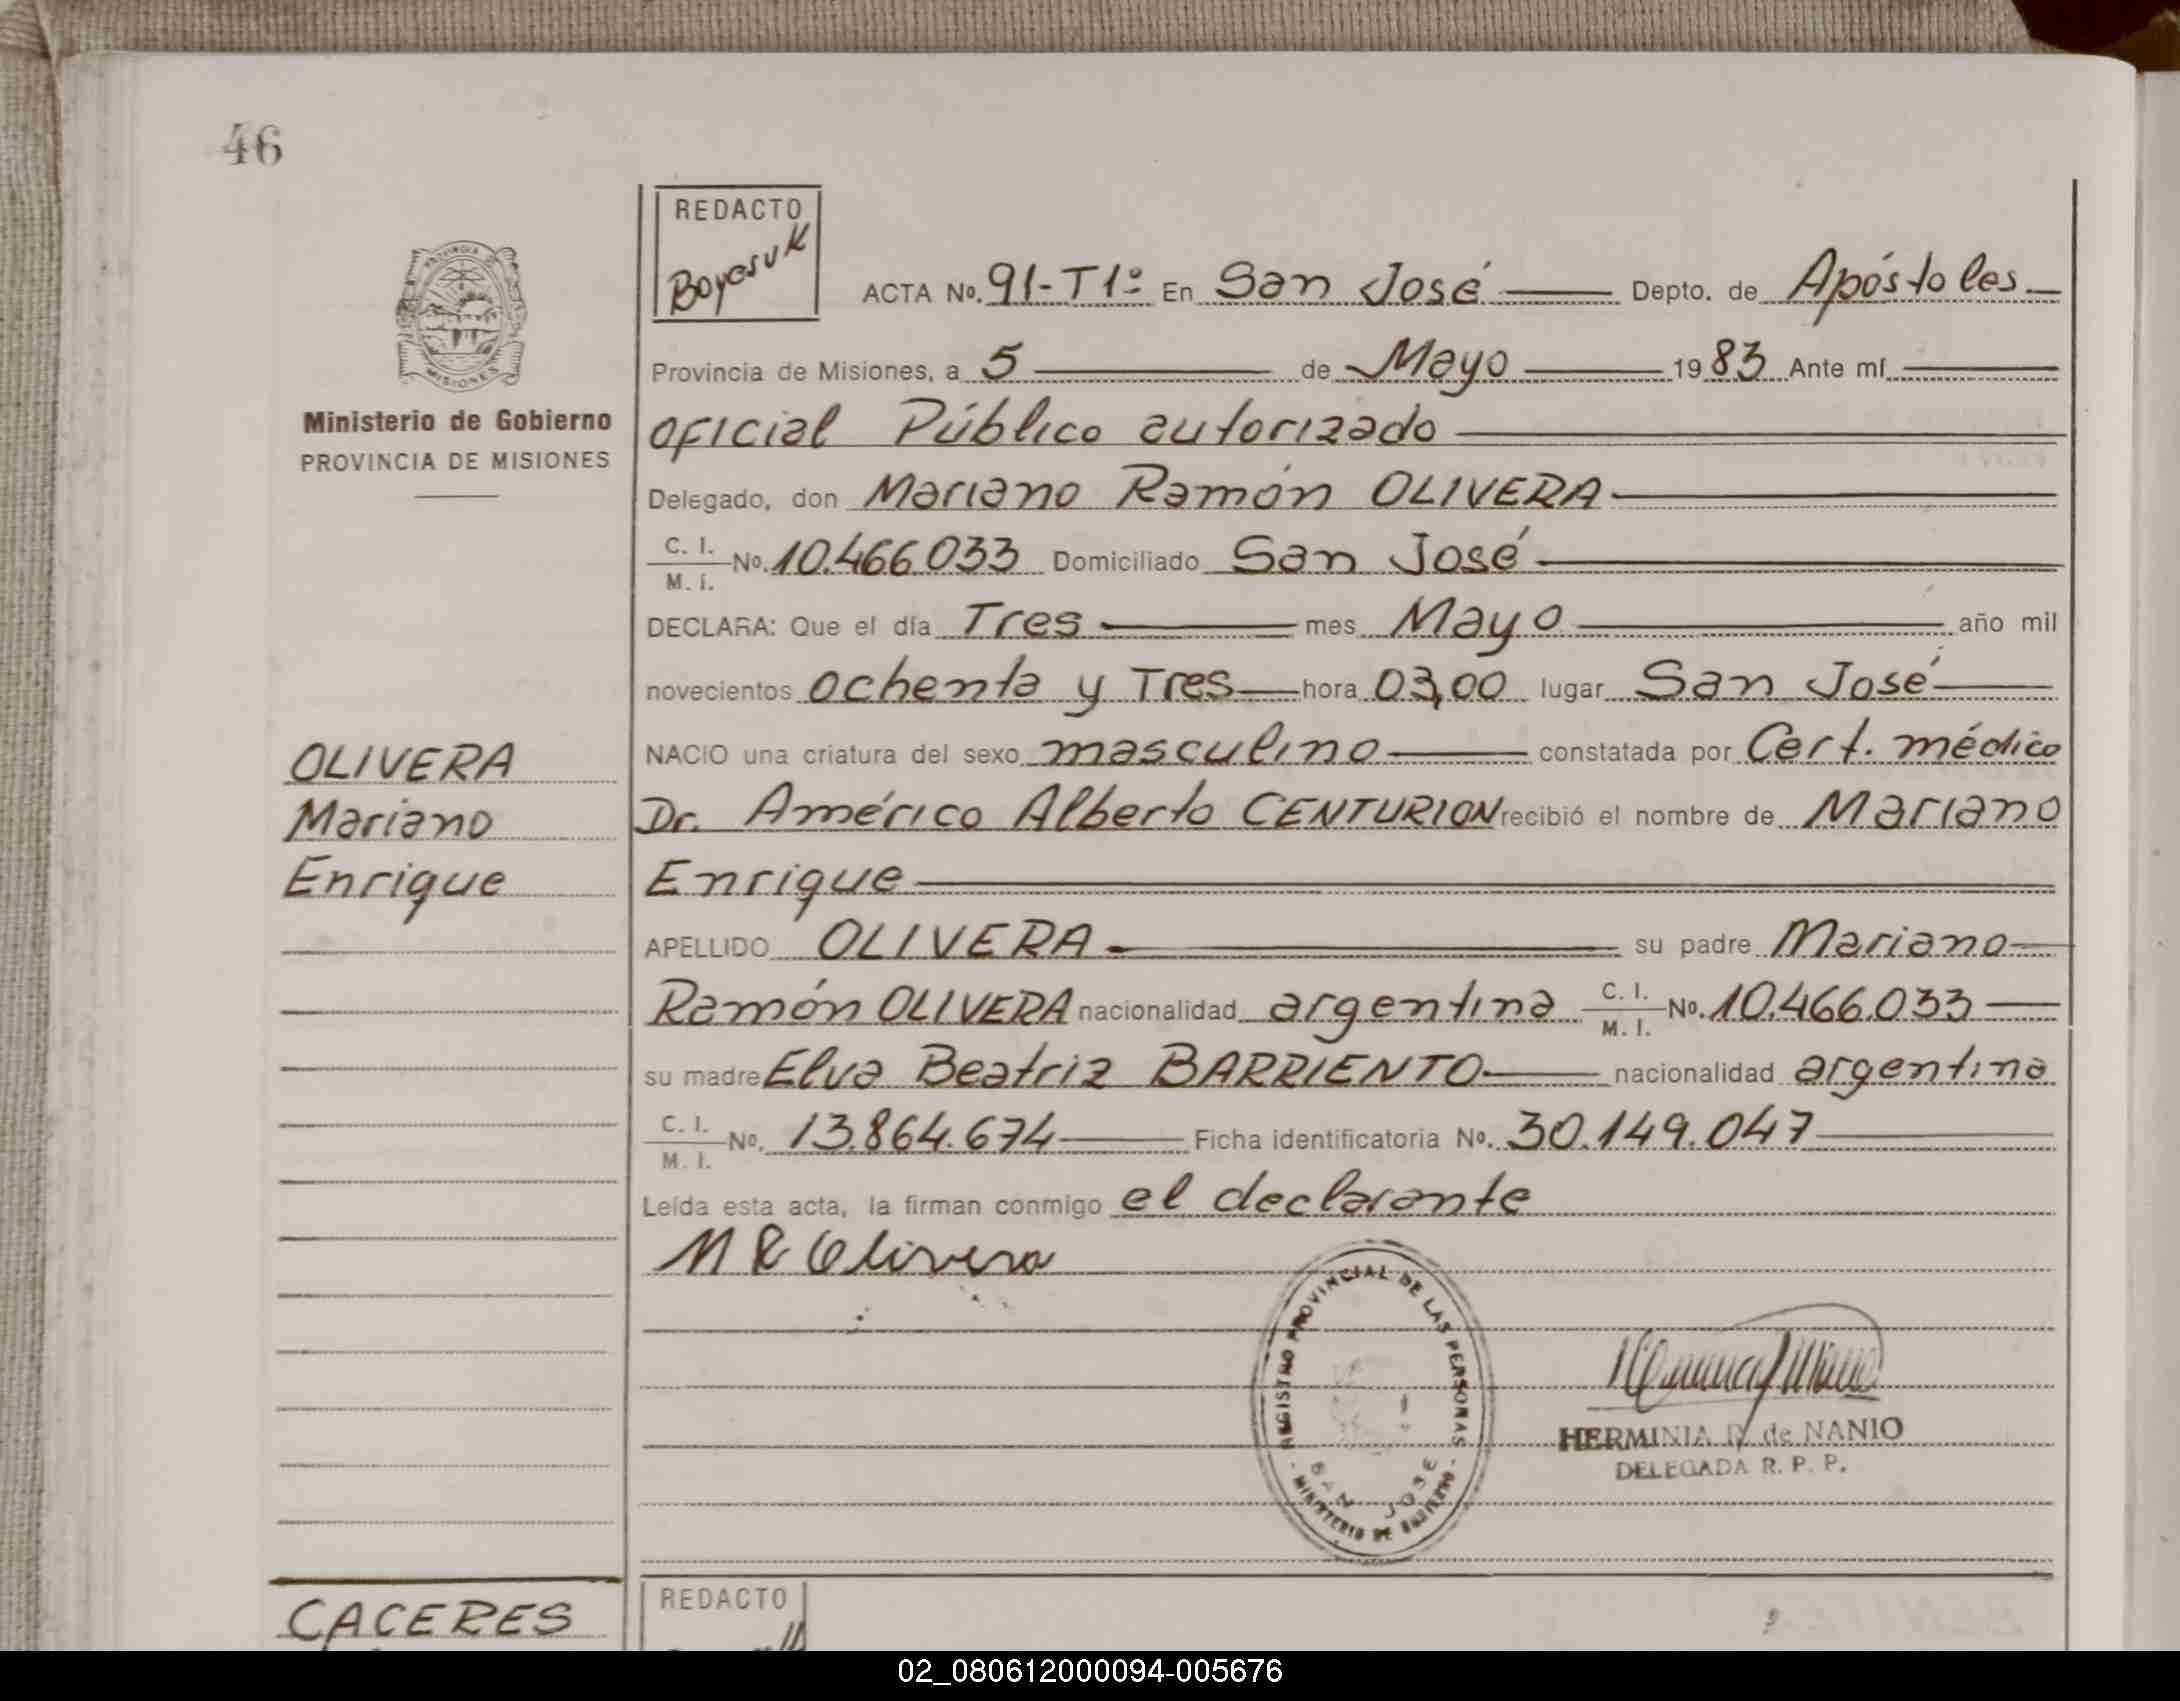 46
REDACTO
Boyesuk
ACTA No. 91-T1º En San José Depto. de Apóstoles
PROVINCIA DE
MISIONES
Ministerio de Gobierno
PROVINCIA DE MISIONES
Provincia de Misiones, a 5 de Mayo 1983 Ante mí
oficial Público autorizado
Delegado, don Mariano Ramón OLIVERA
C. I. / M. I. No. 10.466.033 Domiciliado San José
DECLARA: Que el día Tres mes Mayo año mil
novecientos ochenta y Tres hora 03,00 lugar San José
OLIVERA
Mariano
Enrique
NACIO una criatura del sexo masculino constatada por Cert. médico
Dr. Américo Alberto CENTURION recibió el nombre de Mariano
Enrique
APELLIDO OLIVERA su padre Mariano
Ramón OLIVERA nacionalidad argentina C. I. / M. I. No. 10.466.033
su madre Elva Beatriz BARRIENTO nacionalidad argentina
C. I. / M. I. No. 13.864.674 Ficha identificatoria No. 30.149.047
Leída esta acta, la firman conmigo el declarante
M R Olivera
REGISTRO PROVINCIAL DE LAS PERSONAS
SAN JOSE
MINISTERIO DE GOBIERNO
HERMINIA R. de NANIO
DELEGADA R. P. P.
CACERES
REDACTO
02_080612000094-005676